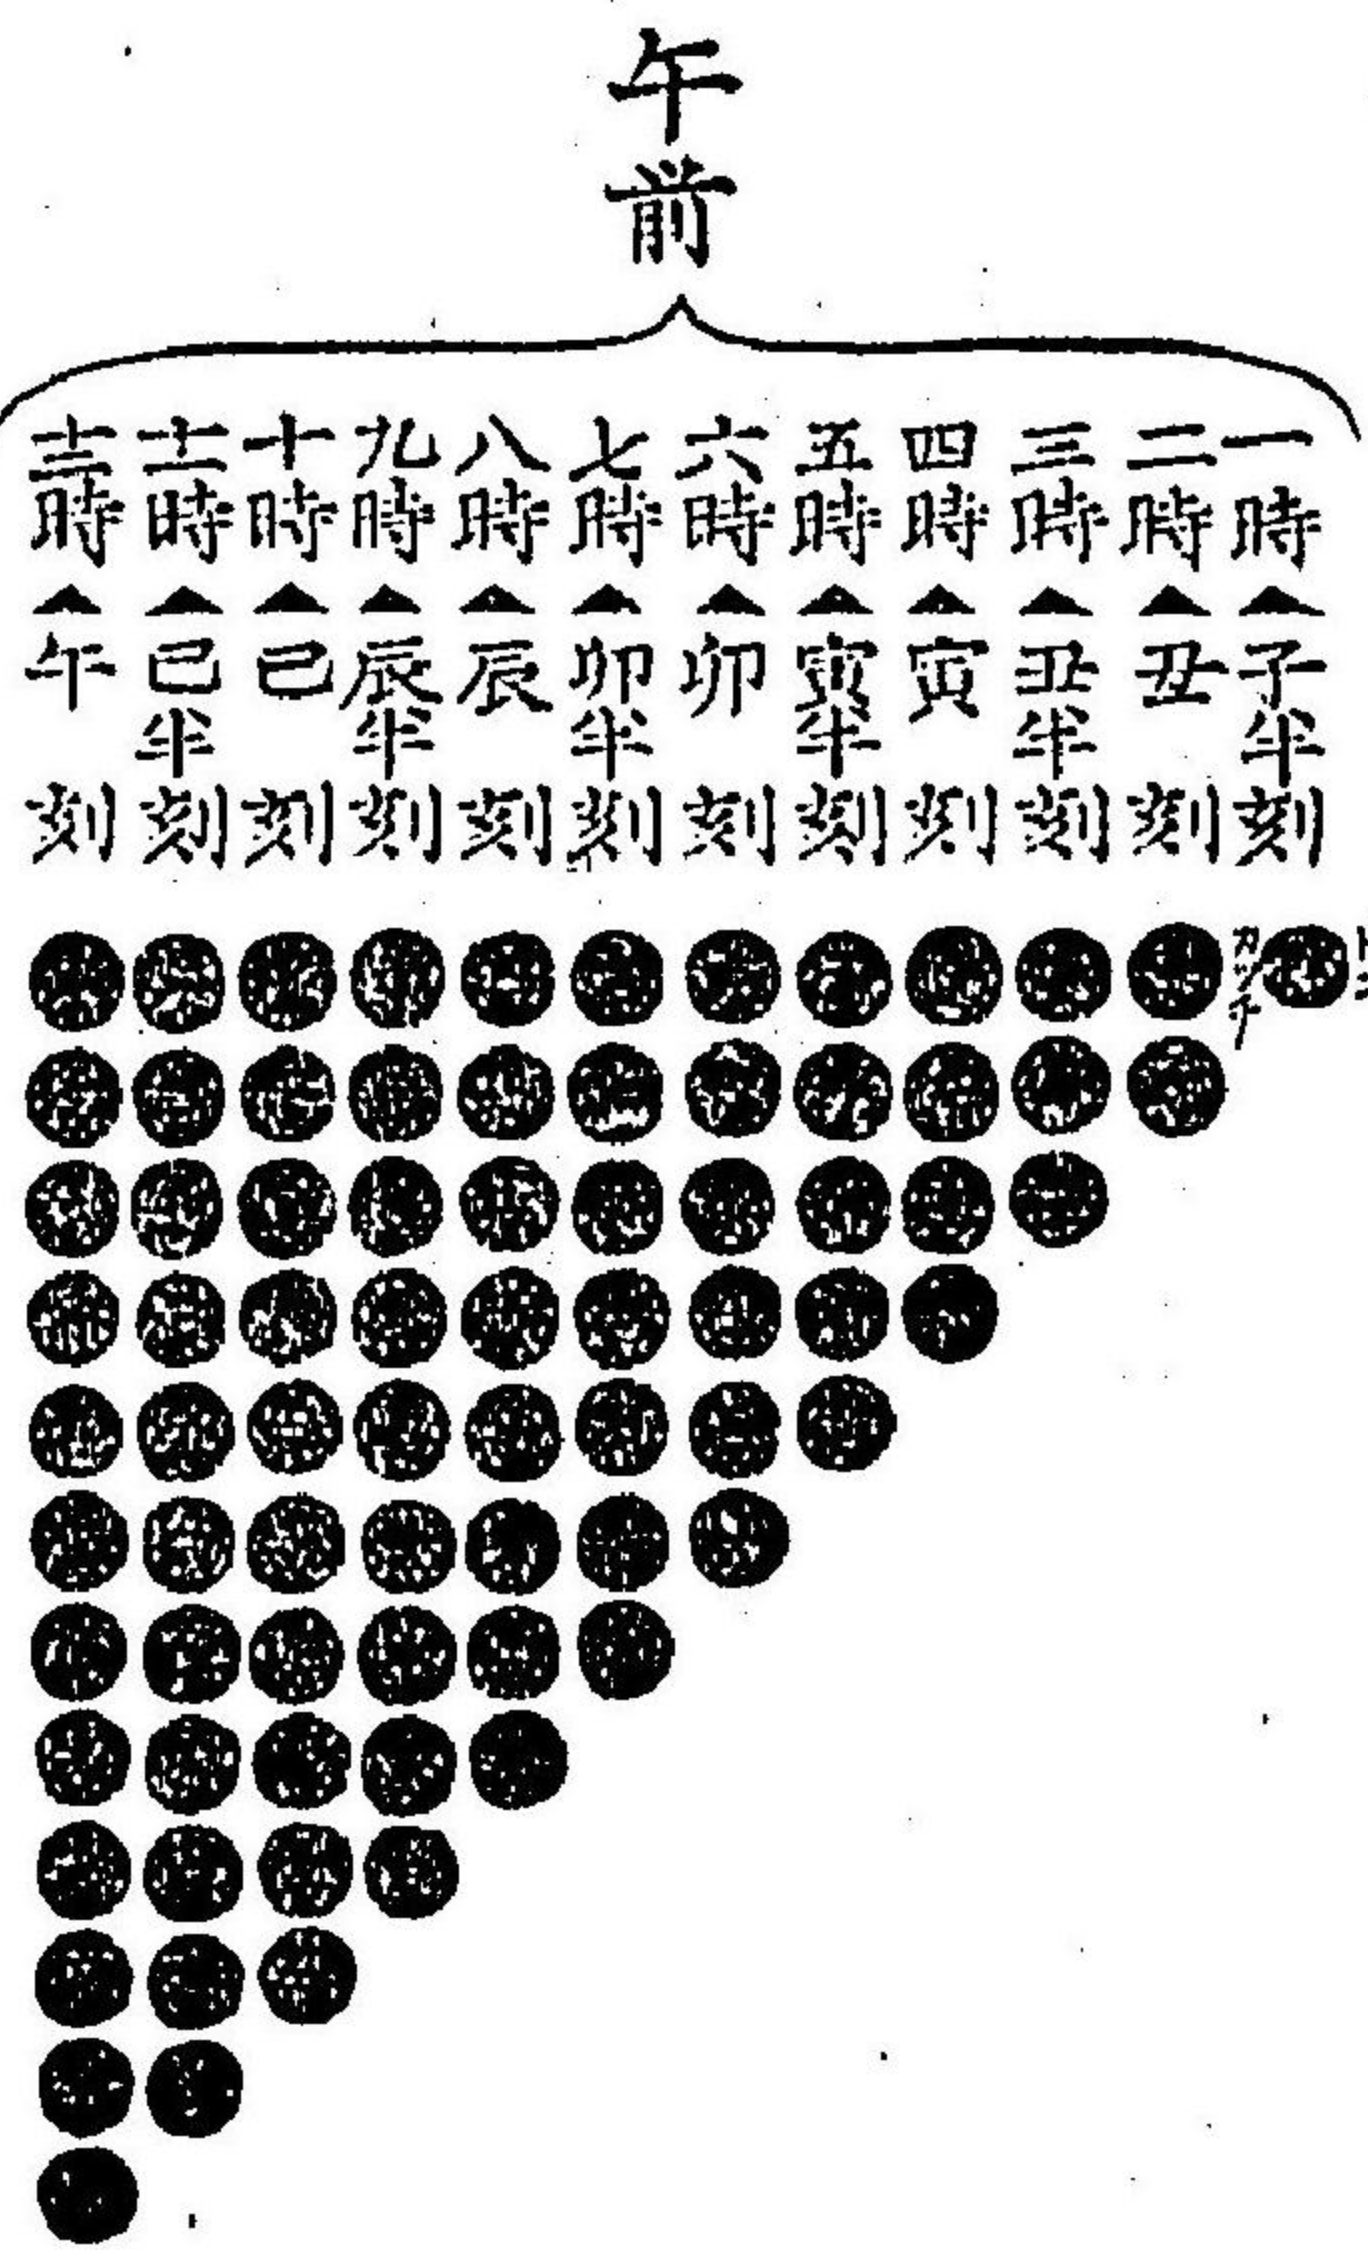 午前
一時 子半刻
二時 丑刻
三時 丑半刻
四時 寅刻
五時 寅半刻
六時 卯刻
七時 卯半刻
八時 辰刻
九時 辰半刻
十時 巳刻
十一時 巳半刻
十二時 午刻
カツチ